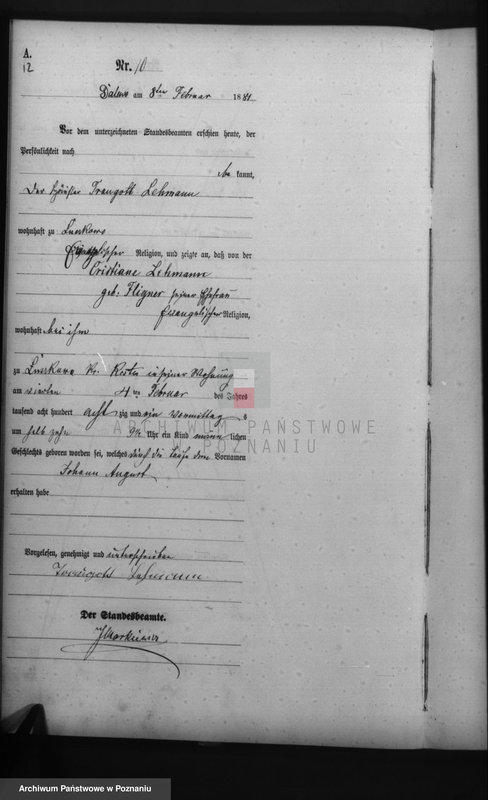 A.
12
Nr. 10
Dalewo am 8ten Februar 1881
Vor dem unterzeichneten Standesbeamten erschien heute, der
Persönlichkeit nach
be kannt,
Der Häusler Traugott Lehmann
wohnhaft zu Lenkowo
Evangelischer Religion, und zeigte an, daß von der
Cristiane Lehmann
geb: Fligner seiner Ehefrau
Evangelischer Religion,
wohnhaft bei ihm
zu in seiner Wohnung
am vierten 4 ten Februar des Jahres
tausend acht hundert acht zig und ein vormittag s
um halb zehn Uhr ein Kind männ lichen
Geschlechts geboren worden sei, welches durch die Taufe den Vornamen
Johann August
erhalten habe
Vorgelesen, genehmigt und unterschrieben
Traugott Lehmann
Der Standesbeamte.
ARCHIWUM PAŃSTWOWE
W POZNANIU
Archiwum Państwowe w Poznaniu